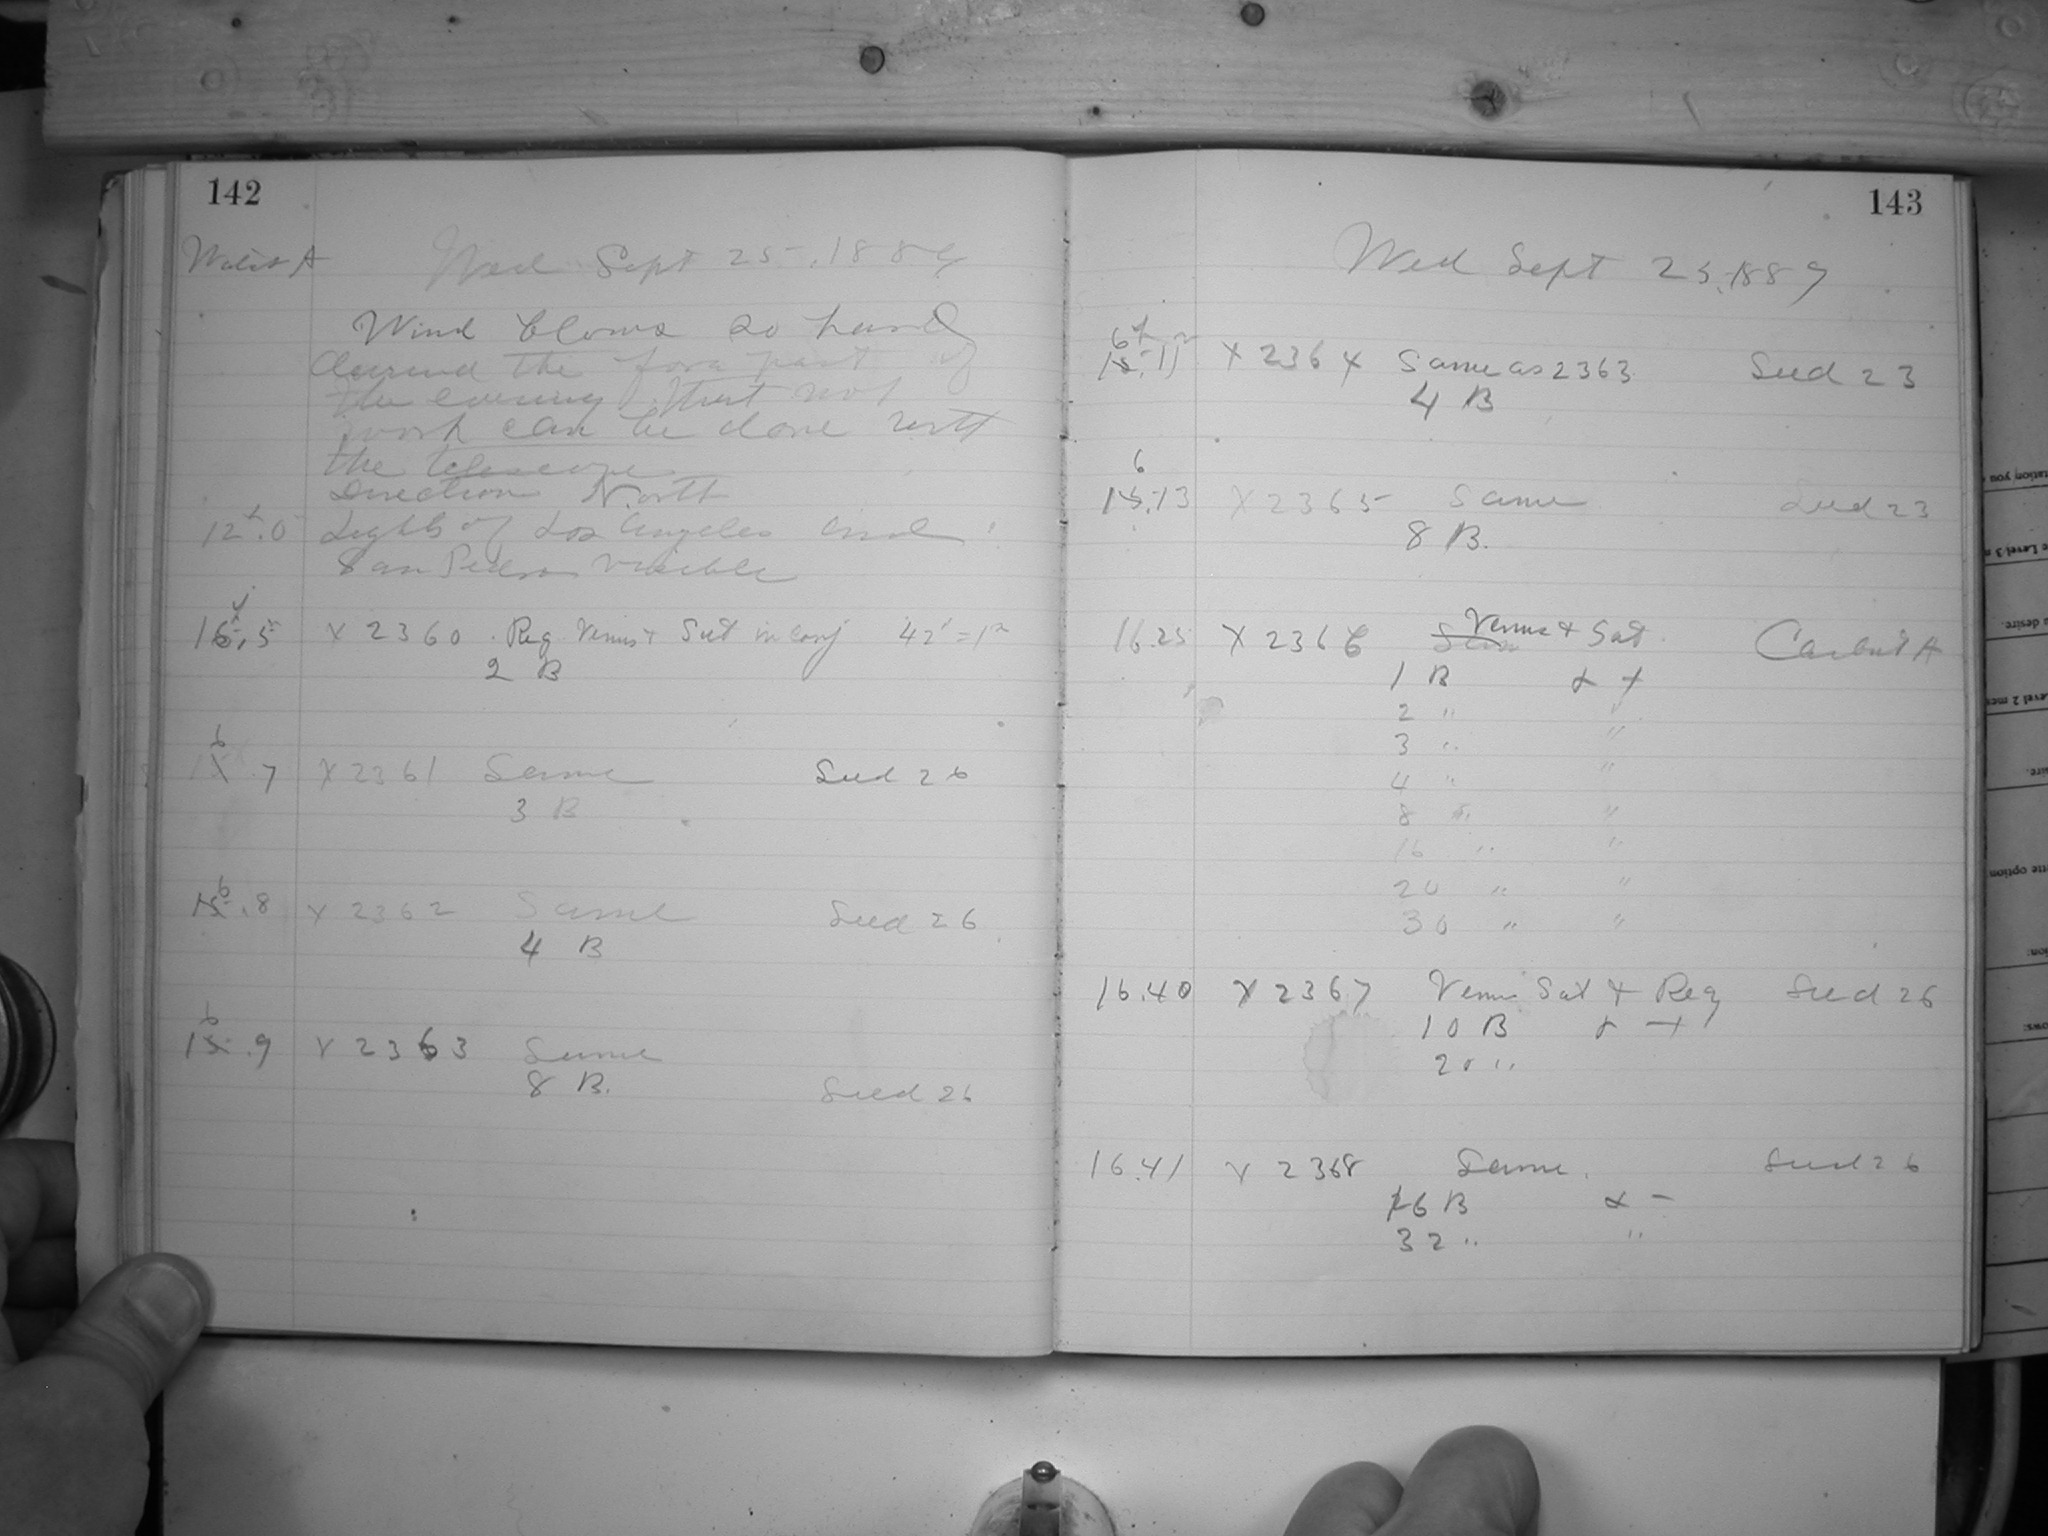 142
Watch A Wed Sept 25, 1889
Wind blows so hard
during the fore part of
the evening that not
work can be done with
the telescope
Direction North
12h.0 Lights of Los Angeles and
San Pedro visible
16.5 X2360 Reg Venus + Sat in conj 42' = 1m
2 B
6
15.7 X2361 Same Seed 26
3 B
6
15.8 X2362 Same Seed 26
4 B
6
15.9 X2363 Same
8 B. Seed 26
143
Wed Sept 25, 1889
6h m
15.11 X2364 Same as 2363 Seed 23
4 B
6
15.13 X2365 Same Seed 23
8 B.
Venus + Sat
16.25 X2366 Carbut A
1 B
2 " "
3 " "
4 " "
8 " "
16 " "
20 " "
30 " "
16.40 X2367 Venus Sat + Reg Seed 26
10 B
20 "
16.41 X2368 Same. Seed 26
16 B
32 " "